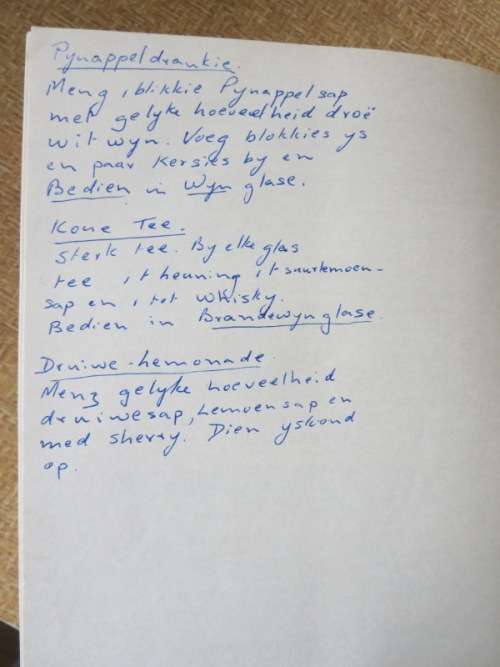 Pynappeldrankie.
Meng 1 blikkie Pynappelsap
met gelyke hoeveelheid droë
witwyn. Voeg blokkies ys
en paar kersies by en
Bedien in Wyn glase.
Koue Tee.
Sterk tee. By elke glas
tee 1t heuning 1t suurlemoen-
sap en 1 tot Whisky.
Bedien in Brandewynglase.
Druiwe-lemonade.
Meng gelyke hoeveelheid
druiwesap, Lemoensap en
med sherry. Dien yskoud
op.